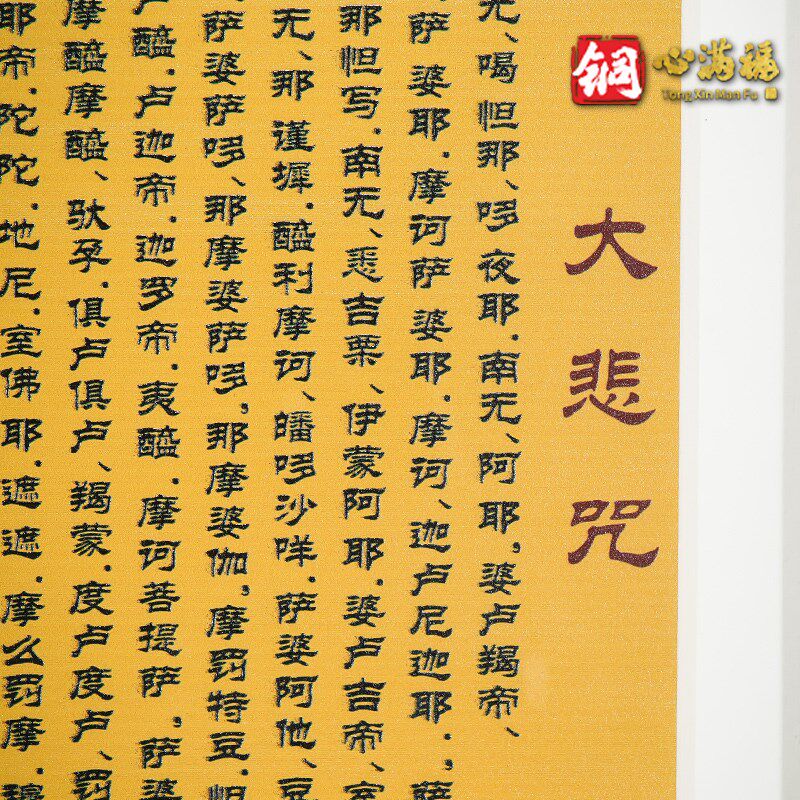 铜
心满福
Tong Xin Man Fu
大悲咒
无、喝怛那、哆夜耶.南无、阿耶,婆卢羯帝、
萨婆耶.摩诃萨婆耶.摩诃、迦卢尼迦耶.,萨
那怛写.南无、悉吉栗、伊蒙阿耶.婆卢吉帝、室
无、那谨墀.醯利摩诃、皤哆沙咩.萨婆阿他、豆
萨婆萨哆、那摩婆萨哆,那摩婆伽,摩罚特豆.怛
卢醯.卢迦帝.迦罗帝.夷醯.摩诃菩提萨,萨婆
摩醯摩醯、驮孕.俱卢俱卢、羯蒙.度卢度卢、罚
耶帝.陀陀.地尼.室佛耶.遮遮.摩么罚摩.穆